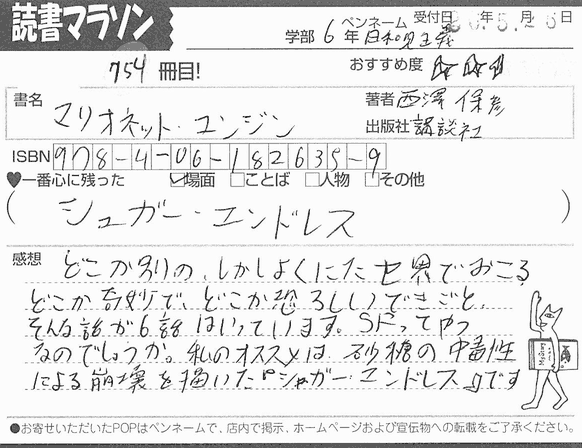 読書マラソン
学部 6年 ペンネーム 日和見主義 受付日 20.5.25 年 月 日
754 冊目! おすすめ度 ☆☆☆
書名 マリオネット・エンジン 著者 西澤 保彦
出版社 講談社
ISBN 978-4-06-182635-9
♥一番心に残った ☑場面 □ことば □人物 □その他
(シュガー・エンドレス)
感想 どこか別の、しかしよくにた世界でおこる
どこか奇妙で、どこか恐ろしいできごと、
そんな話が6話はいっています。SFってやつ
なのでしょうか。私のオススメは、砂糖の中毒性
による崩壊を描いた『シュガー・エンドレス』です
●お寄せいただいたPOPはペンネームで、店内で掲示、ホームページおよび宣伝物への転載をご了承ください。